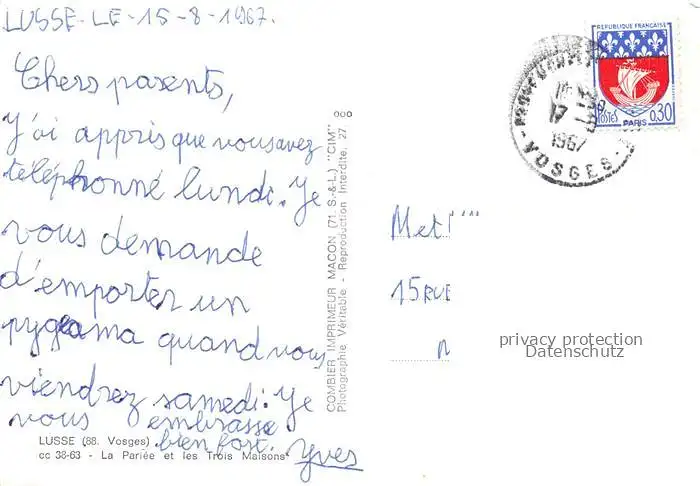 LUSSE-LE-15-8-1967.
Chers parents,
J'ai appris que vousavez
téléphonné lundi. Je
vous demande
d'emporter un
pygeama quand vous
viendrez samedi. Je
vous embrasse
bien fort. Yves
LUSSE (88. Vosges)
cc 38-63 - La Pariée et les Trois Maisons
COMBIER IMPRIMEUR MACON (71. S.-&-L.) "CIM"
Photographie Véritable - Reproduction Interdite. 27
REPUBLIQUE FRANÇAISE
POSTES
0,30
PARIS
17
1967
VOSGES
Met
15 RUE
privacy protection
Datenschutz